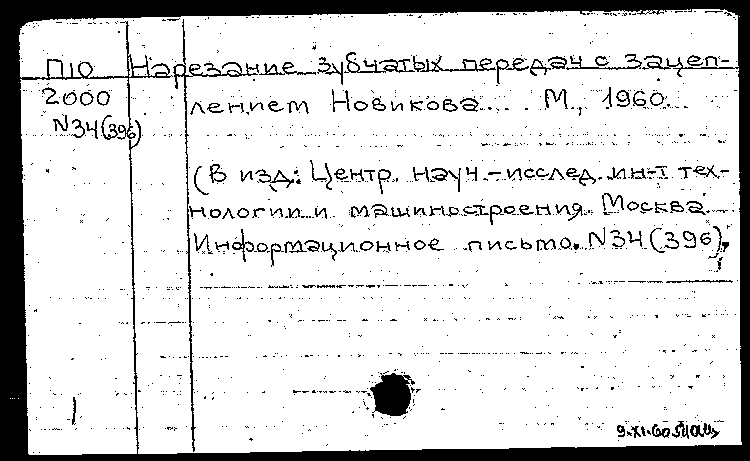 П10 Нарезание зубчатых передач с зацеп-
2000 лением Новикова. М., 1960.
N34(396)
(В изд.: Центр. науч.-исслед. ин-т тех-
нологии и машиностроения. Москва.
Информационное письмо. N34(396).
9.XI.60